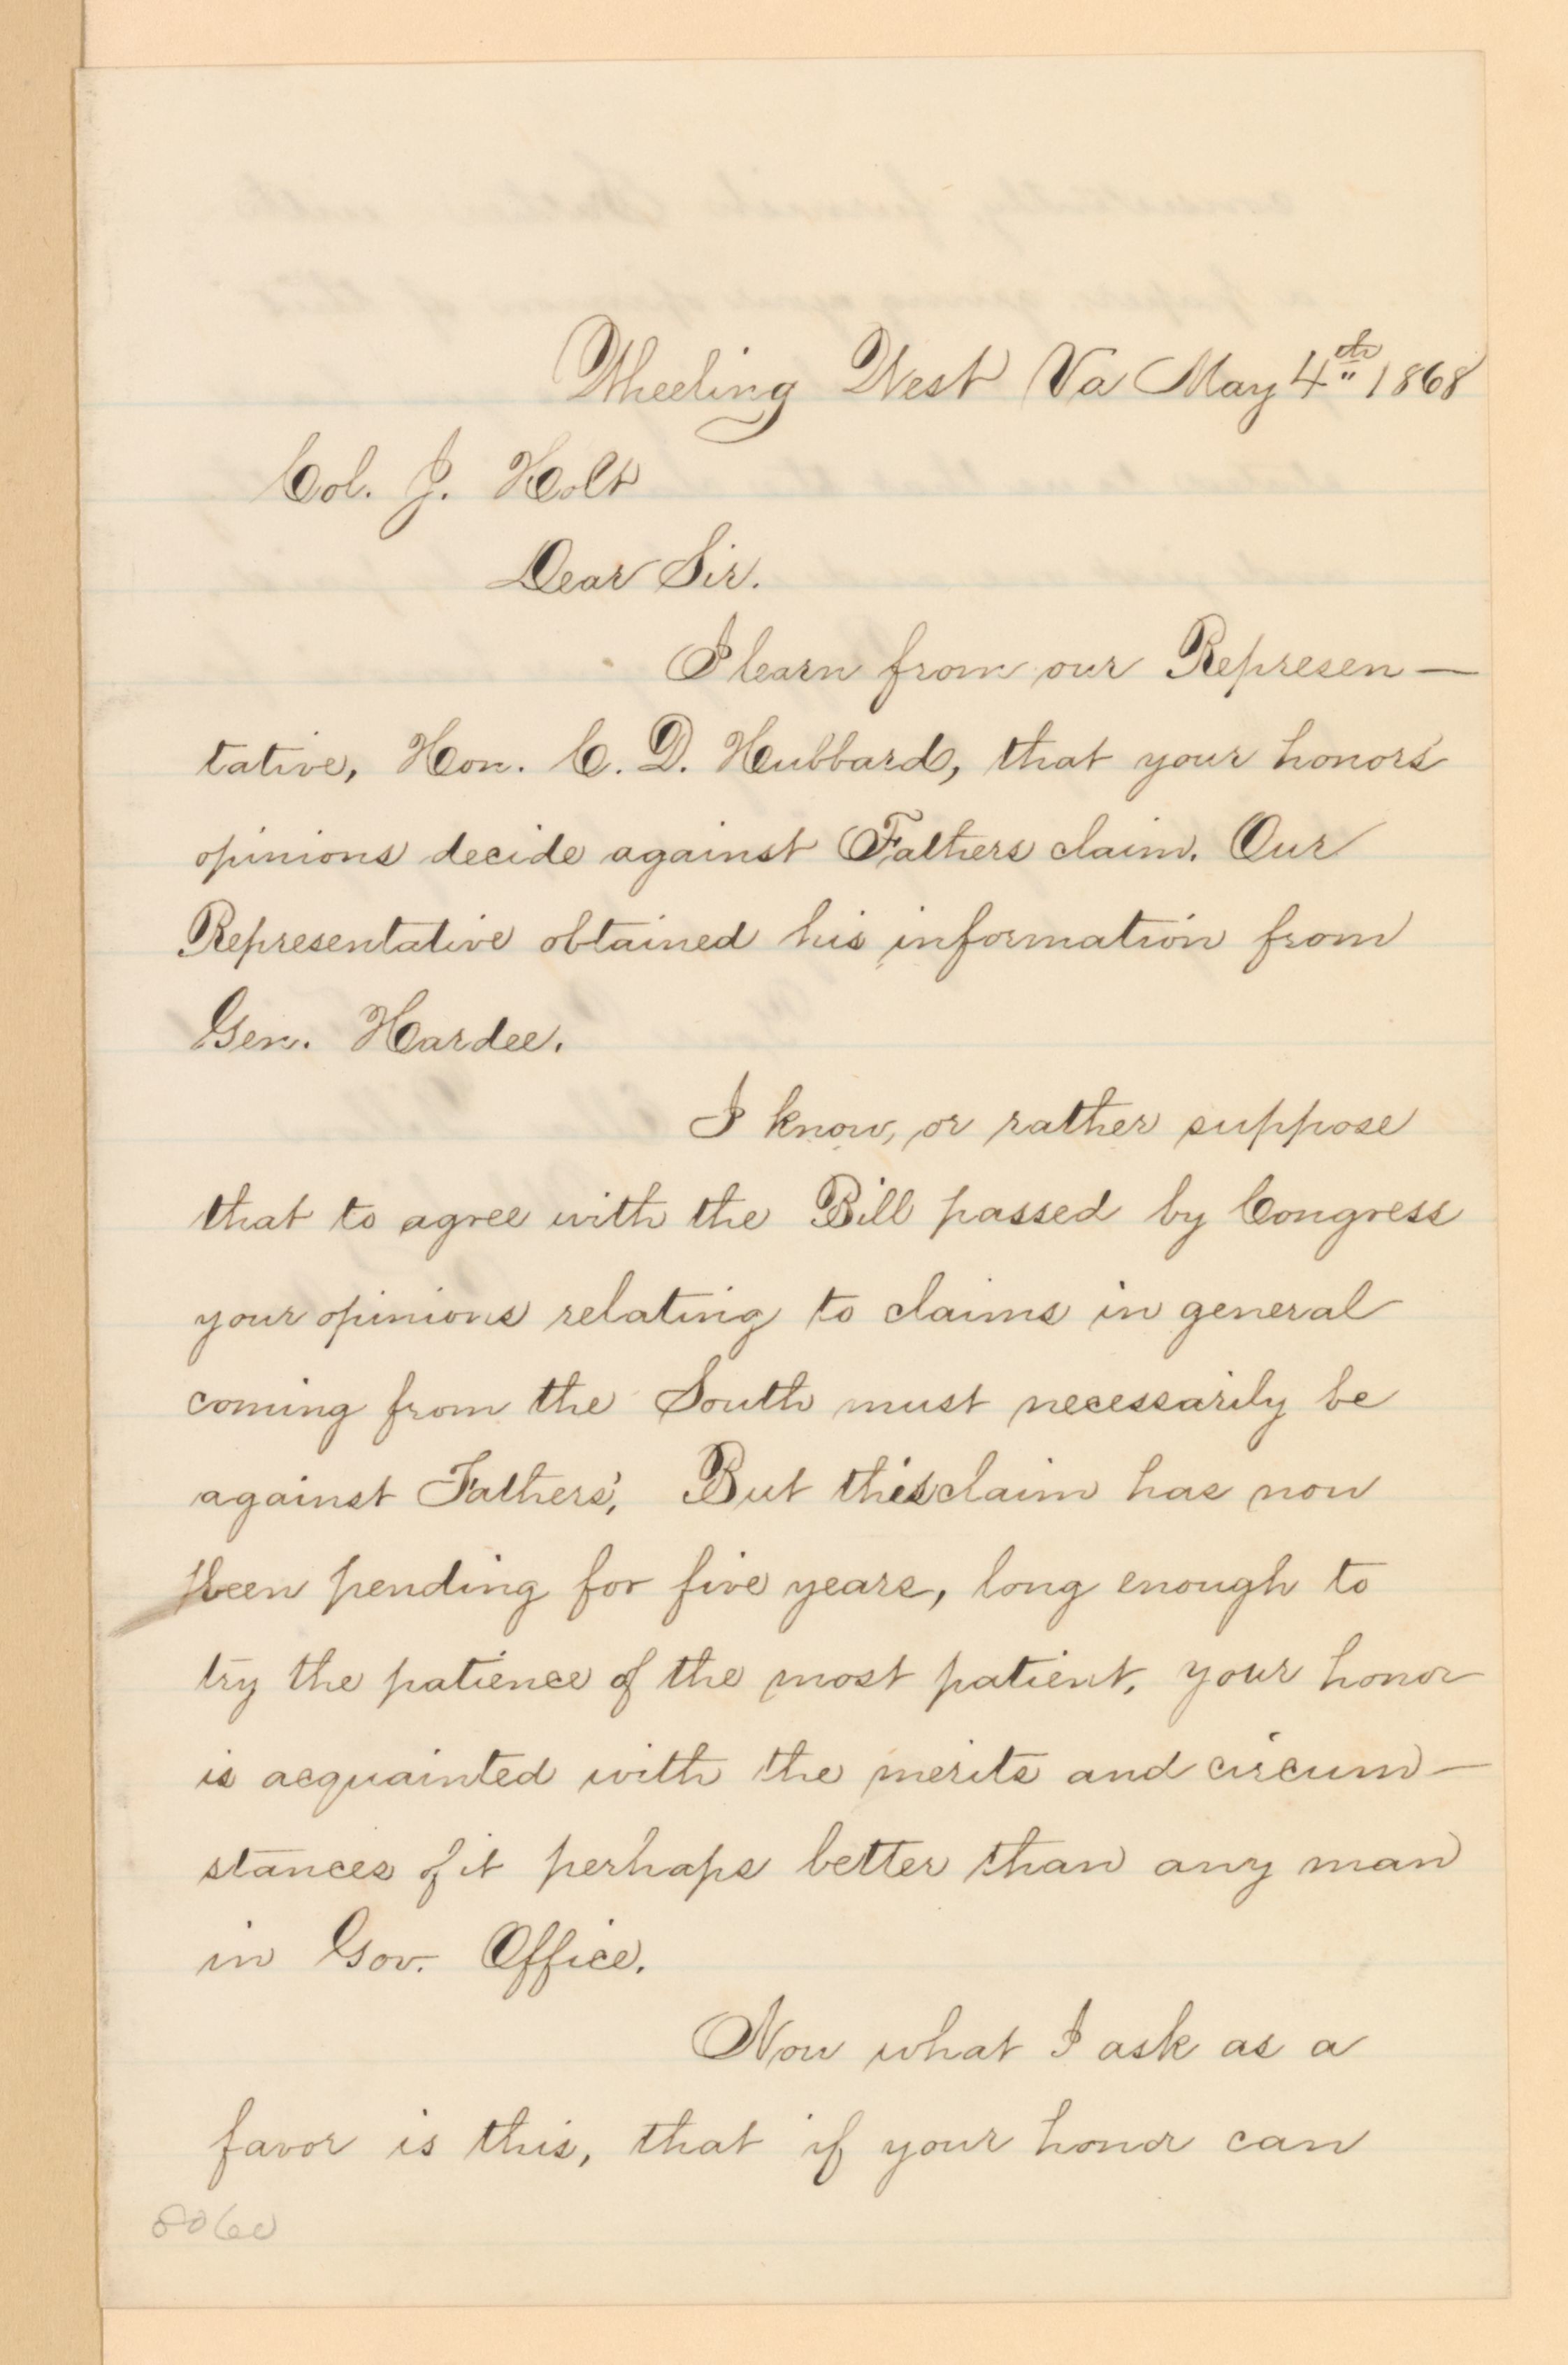 Wheeling West Va May 4th 1868
Col. J. Holt
Dear Sir.
I learn from our Represen—
tative, Hon. C. D. Hubbard, that your honors
opinions decide against Fathers claim. Our
Representative obtained his information from
Gen. Hardee.
I know, or rather suppose
that to agree with the Bill passed by Congress
your opinions relating to claims in general
coming from the South must necessarily be
against Fathers'. But this claim has now
been pending for five years, long enough to
try the patience of the most patient, your honor
is acquainted with the merits and circum—
stances of it perhaps better than any man
in Gov. Office.
Now what I ask as a
favor is this, that if your honor can
8060